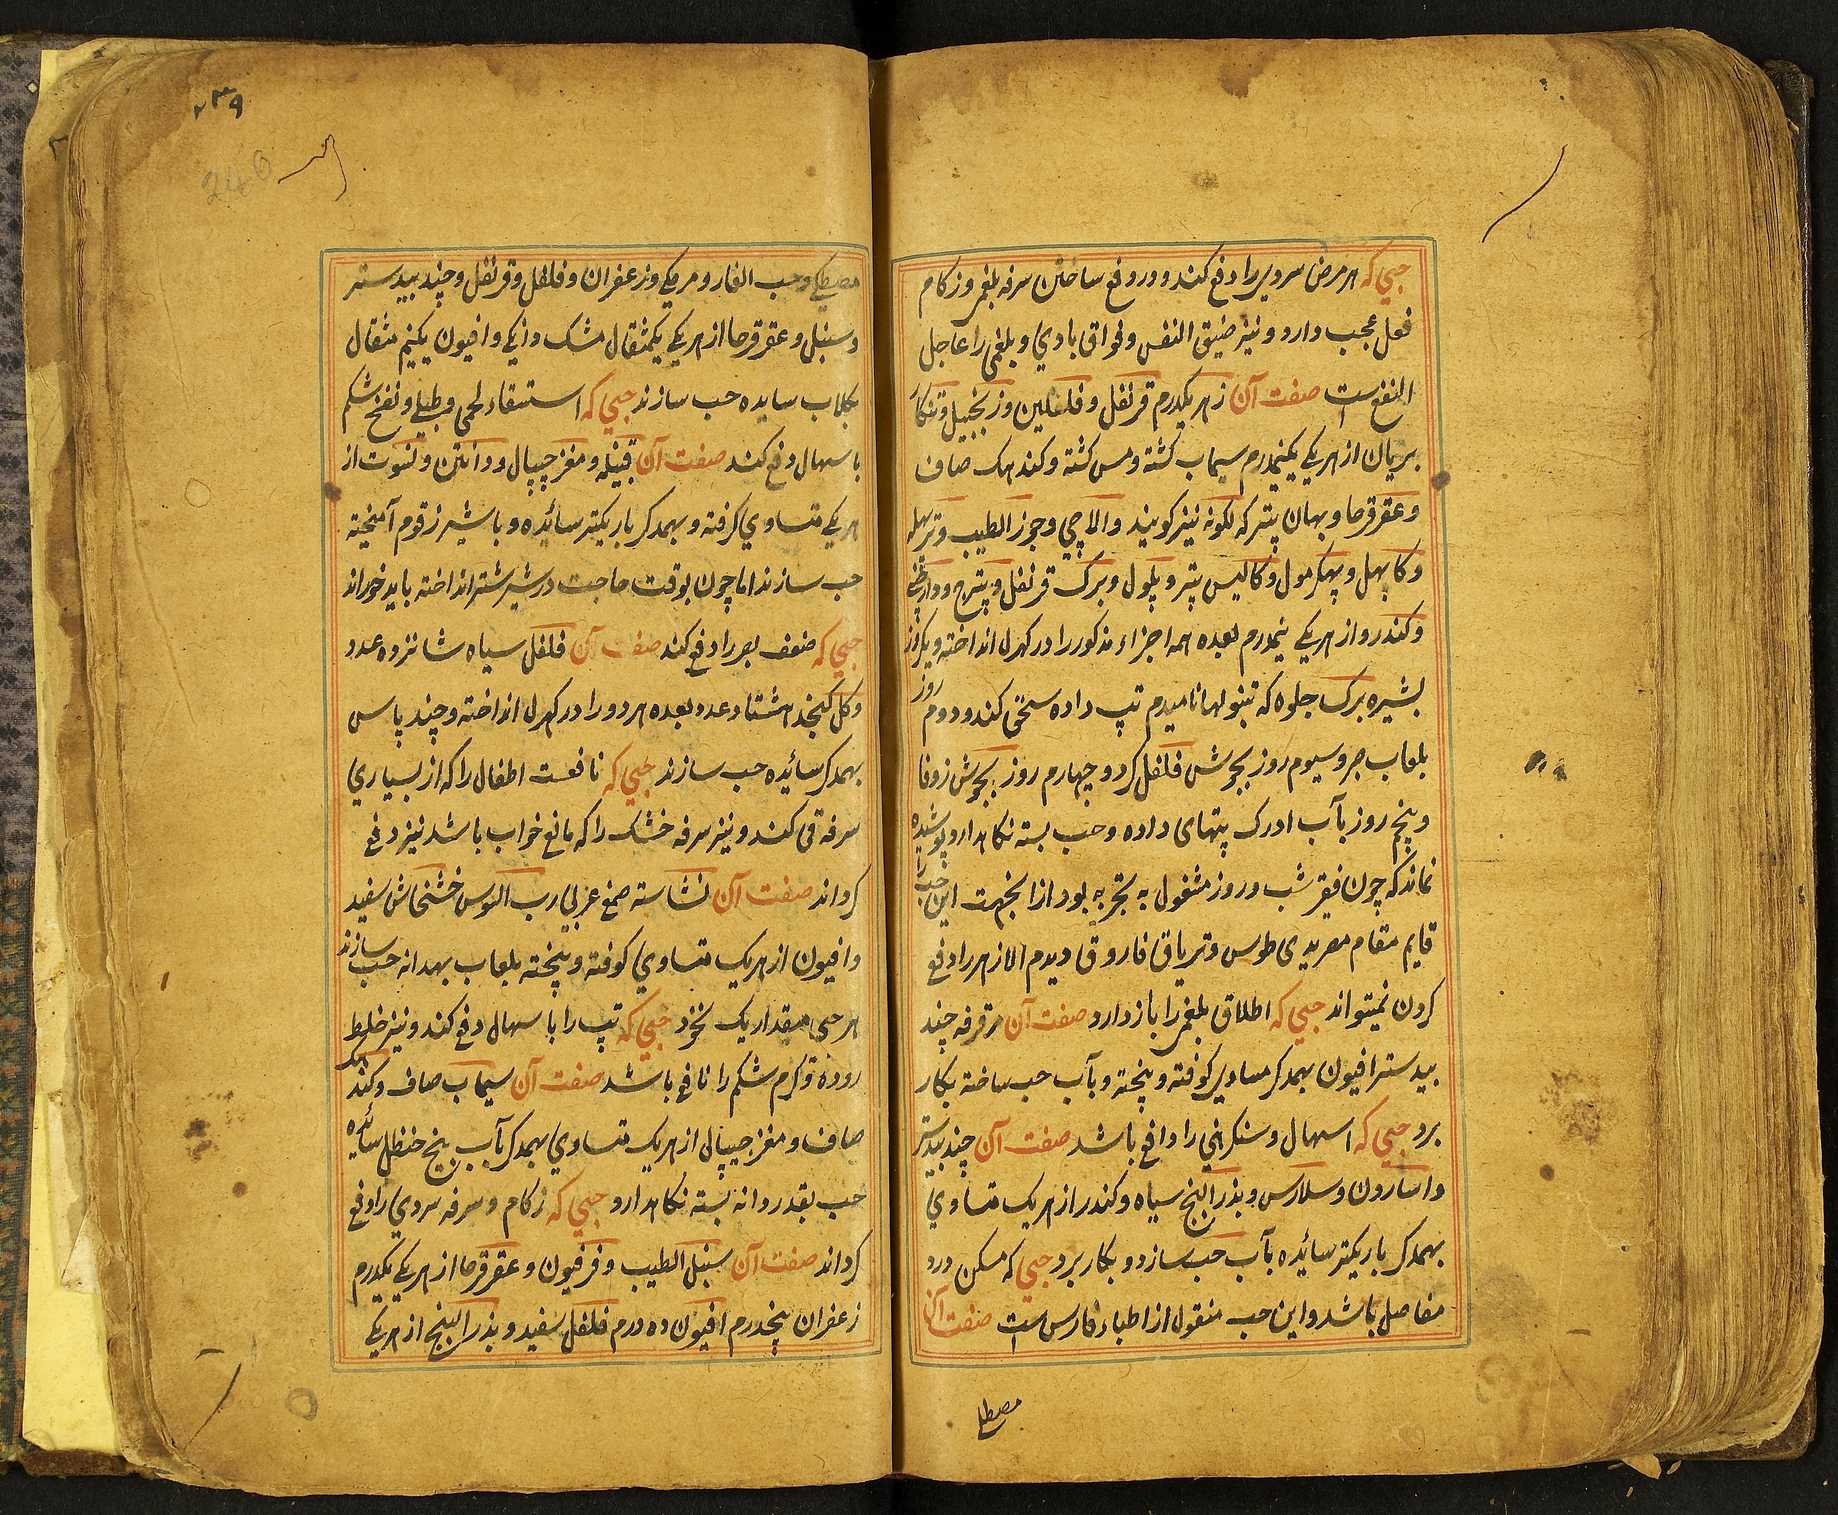 حبي که هر مرض سردي را دفع کند و در دفع ساختن سرفه بلغم و زکام
فعل عجب دارد و نیز ضیق النفس و فواق بادي و بلغمی را عاجل
النفع است صفت آن زهر یکدرم قرنفل و فلفلین و زنجبیل و تنکار
بریان از هر یکے یکنیم درم سیماب کشته و مس کشته و کندهک صاف
و عقرقرحا و بهان پتر که نیز کویند و الاچي و جوز الطیب و
و کاپهل و پهکرمول و پتر و پلول و برک قرنفل و پترج و
و کندر و از هر یکے نیمدرم بعده همه اجزاء مذکور را در کهرل انداخته و یکروز
بشیره برک جلوه که تنبول هانامیدم تپ داده سحق کند و دوم روز
بلعاب و سیوم روز بجوش فلفل کرد و چهارم روز بجوش زوفا
و پنجم روز بآب ادرک پتهای داده و حب بسته نکاهدارد پوشیده
نماند که چون فقیر شب و روز مشغول به تجربه بود ازانجهت این حب را
قایم مقام طوس و تریاق فاروق دیدم الا زهر را دفع
کردن نمیتواند حبي که اطلاق بلغم را باز دارد صفت آن قرفه جند
بیدستر افیون بهمدکر مساوي کوفته و پخته و بآب حب ساخته بکار
برد حبي که اسهال و سنکرهني را دافع باشد صفت آن جند بیدستر
و اسارون و سلارس و بذر البنج سیاه و کندر از هر یک متساوي
بهمدکر باریکتر سائیده بآب حب سازد و بکار برد حبي که مسکن درد
مفاصل باشد و این حب منقول از اطباء فارس است صفت آن
مصطکے
۲۳۹
240
مصطکے و حب الغار و مر مکے و زعفران و فلفل و قرنفل و جند بیدستر
و سنبل و عقرقرحا از هر یکے یکمثقال مشک دانکے و افیون یکنیم مثقال
بکلاب سایده حب سازند حبي که استسقاء لحمی و طبلے و نفخ شکم
باسهال دفع کند صفت آن و مغز جیپال و و از
هر یکے متساوي کرفته و بهمدکر باریکتر سائیده و با شیر زقوم آمیخته
حب سازند اما چون بوقت حاجت در شیر شتر انداخته باید خوراند
حبي که ضعف بصر را دفع کند صفت آن فلفل سیاه شانزده عدد
و کل کنجد هشتاد عدد بعده هر دو را در کهرل انداخته و چند پاس
بهمدکر سائیده حب سازند حبي که نافعست اطفال را که از بسیاري
سرفه قی کند و نیز سرفه خشک را که مانع خواب باشد نیز دفع
کرداند صفت آن نشاسته صمغ عربي رب السوس خشخاش سفید
و افیون از هر یک متساوي کوفته و پخته بلعاب بهدانه حب سازند
هر حبی مقدار یک نخود حبي که تپ را با سهال دفع کند و نیز خلیط
روده و کرم شکم را نافع باشد صفت آن سیماب صاف و کندهک
صاف و مغز جیپال از هر یک متساوي بهمدکر بآب بیخ حنظل سائیده
حب بقدر دانه بسته نکاهدارد حبي که زکام و سرفه سردي را دفع
کرداند صفت آن سنبل الطیب و فرفیون و عقرقرحا از هر یکے یکدرم
زعفران پنجدرم افیون ده درم فلفل سفید و بذر البنج از هر یکے